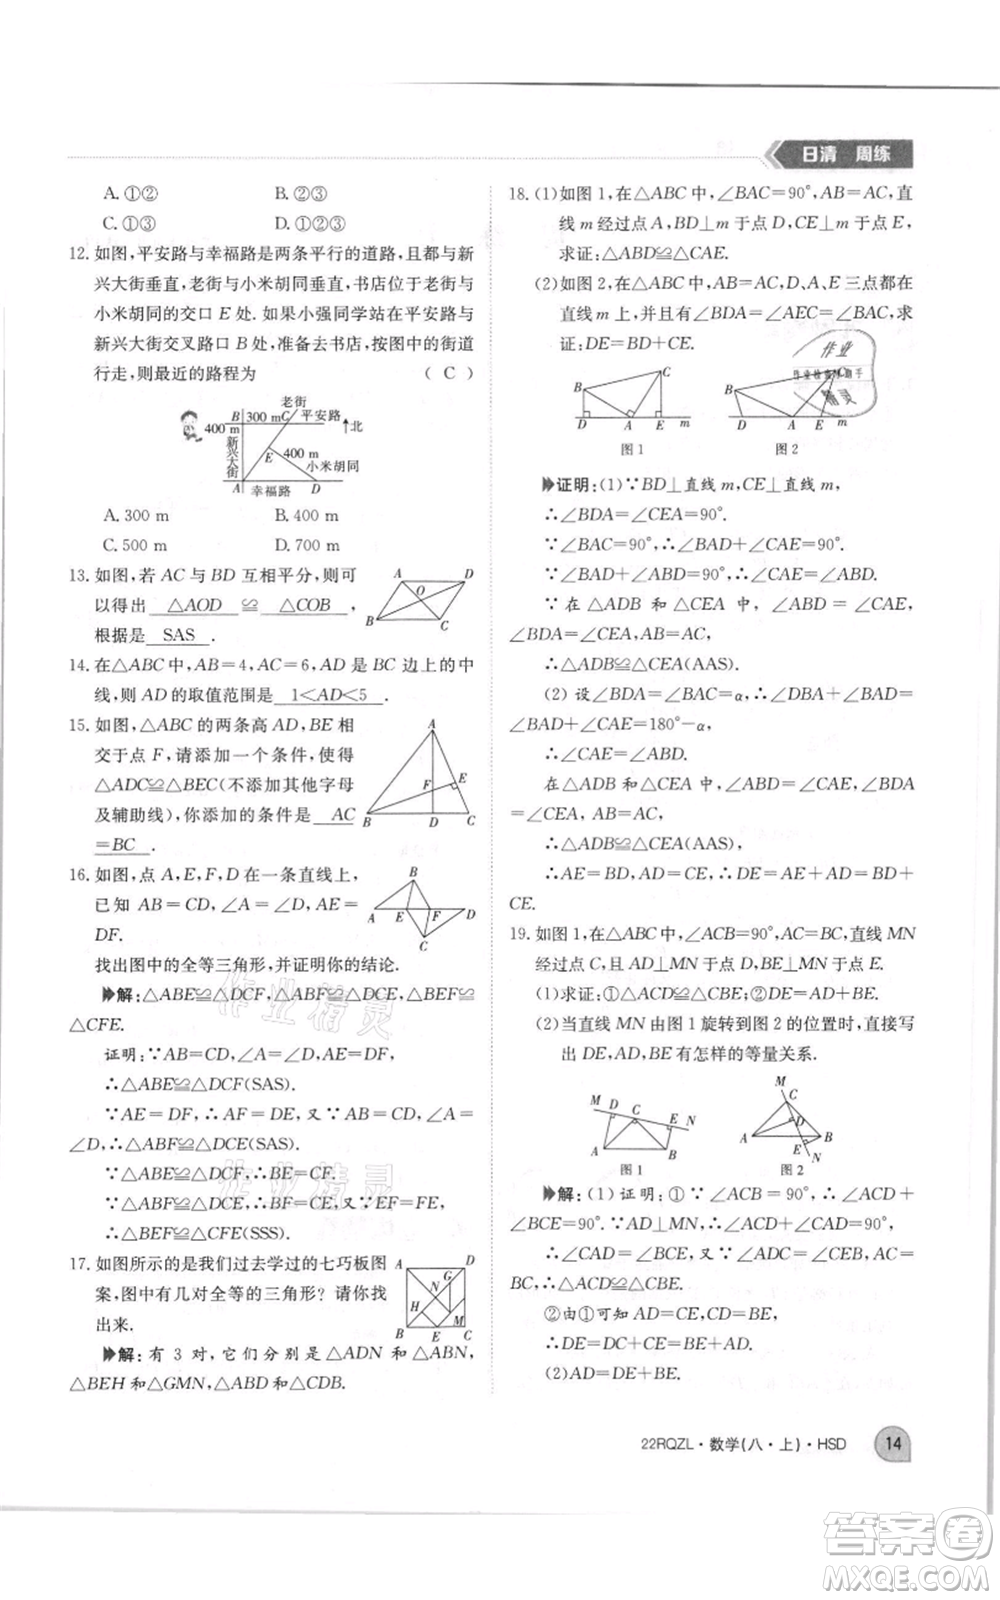 日清 周练
A. ①②
B. ②③
C. ①③
D. ①②③
12. 如图,平安路与幸福路是两条平行的道路,且都与新
兴大街垂直,老街与小米胡同垂直,书店位于老街与
小米胡同的交口 E 处. 如果小强同学站在平安路与
新兴大街交叉路口 B 处,准备去书店,按图中的街道
行走,则最近的路程为 ( C )
老街
B 300 m C 平安路
400 m
北
新兴大街
E 400 m
小米胡同
A 幸福路 D
A. 300 m
B. 400 m
C. 500 m
D. 700 m
13. 如图,若 AC 与 BD 互相平分,则可
以得出 △AOD ≌ △COB ,
根据是 SAS .
A D
O
B C
14. 在△ABC中,AB=4,AC=6,AD 是 BC 边上的中
线,则 AD 的取值范围是 1<AD<5 .
15. 如图,△ABC 的两条高 AD,BE 相
交于点 F,请添加一个条件,使得
△ADC≌△BEC(不添加其他字母
及辅助线),你添加的条件是 AC
=BC .
A
F E
B D C
16. 如图,点 A,E,F,D 在一条直线上,
已知 AB=CD,∠A=∠D,AE=
DF.
找出图中的全等三角形,并证明你的结论.
B
A E F D
C
解:△ABE≌△DCF,△ABF≌△DCE,△BEF≌
△CFE.
证明:∵AB=CD,∠A=∠D,AE=DF,
∴△ABE≌△DCF(SAS).
∵AE=DF,∴AF=DE,又∵AB=CD,∠A=
∠D,∴△ABF≌△DCE(SAS).
∵△ABE≌△DCF,∴BE=CF.
∵△ABF≌△DCE,∴BF=CE,又∵EF=FE,
∴△BEF≌△CFE(SSS).
17. 如图所示的是我们过去学过的七巧板图
案,图中有几对全等的三角形?请你找
出来.
A D
N G
H M
B E C
解:有 3 对,它们分别是△ADN 和△ABN,
△BEH和△GMN,△ABD和△CDB.
18. (1)如图 1,在△ABC 中,∠BAC=90°,AB=AC,直
线 m 经过点 A,BD⊥m 于点 D,CE⊥m 于点 E,
求证:△ABD≌△CAE.
(2)如图 2,在△ABC 中,AB=AC,D、A、E 三点都在
直线 m 上,并且有∠BDA=∠AEC=∠BAC,求
证:DE=BD+CE.
作业
作业检查小助手
精灵
B C
D A E m
图1
B C
D A E m
图2
证明:(1)∵BD⊥直线 m,CE⊥直线 m,
∴∠BDA=∠CEA=90°.
∵∠BAC=90°,∴∠BAD+∠CAE=90°.
∵∠BAD+∠ABD=90°,∴∠CAE=∠ABD.
∵ 在 △ADB 和 △CEA 中,∠ABD=∠CAE,
∠BDA=∠CEA,AB=AC,
∴△ADB≌△CEA(AAS).
(2) 设∠BDA=∠BAC=α,∴∠DBA+∠BAD=
∠BAD+∠CAE=180°-α,
∴∠CAE=∠ABD.
在△ADB 和△CEA 中,∠ABD=∠CAE,∠BDA=
∠CEA,AB=AC,
∴△ADB≌△CEA(AAS).
∴AE=BD,AD=CE,∴DE=AE+AD=BD+
CE.
19. 如图 1,在△ABC 中,∠ACB=90°,AC=BC,直线 MN
经过点 C,且 AD⊥MN 于点 D,BE⊥MN 于点 E.
(1)求证:①△ADC≌△CEB;②DE=AD+BE.
(2)当直线 MN 由图 1 旋转到图 2 的位置时,直接写
出 DE,AD,BE 有怎样的等量关系.
M D C E N
A B
图1
M
C
D
A B
E
N
图2
解:(1)证明:①∵∠ACB=90°,∴∠ACD+
∠BCE=90°. ∵AD⊥MN,∴∠CAD+∠ACD=90°,
∴∠CAD=∠BCE,又∵∠ADC=∠CEB,AC=
BC,∴△ADC≌△CEB(AAS).
②由①可知 AD=CE,CD=BE,
∴DE=DC+CE=BE+AD.
(2)AD=DE+BE.
作业精灵
作业精灵
22RQZL·数学(八·上)·HSD
14
答案卷
MXQE.COM